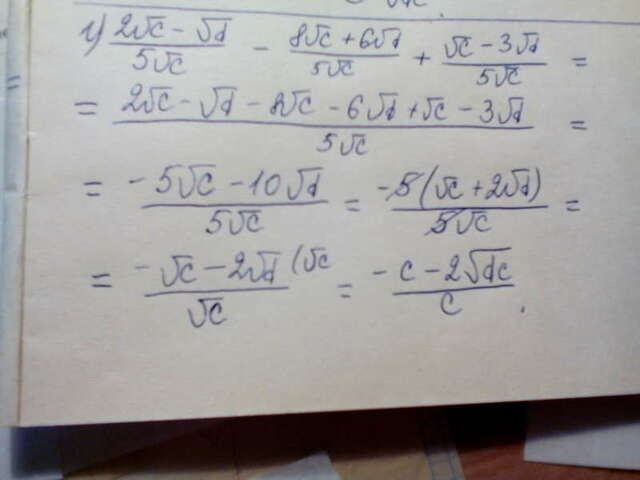 1) (2√c − √d)/(5√c) − (8√c + 6√d)/(5√c) + (√c − 3√d)/(5√c) =
= (2√c − √d − 8√c − 6√d + √c − 3√d)/(5√c) =
= (−5√c − 10√d)/(5√c) = (−5(√c + 2√d))/(5√c) =
= (−√c − 2√d (√c)/(√c) = (−c − 2√dc)/c .